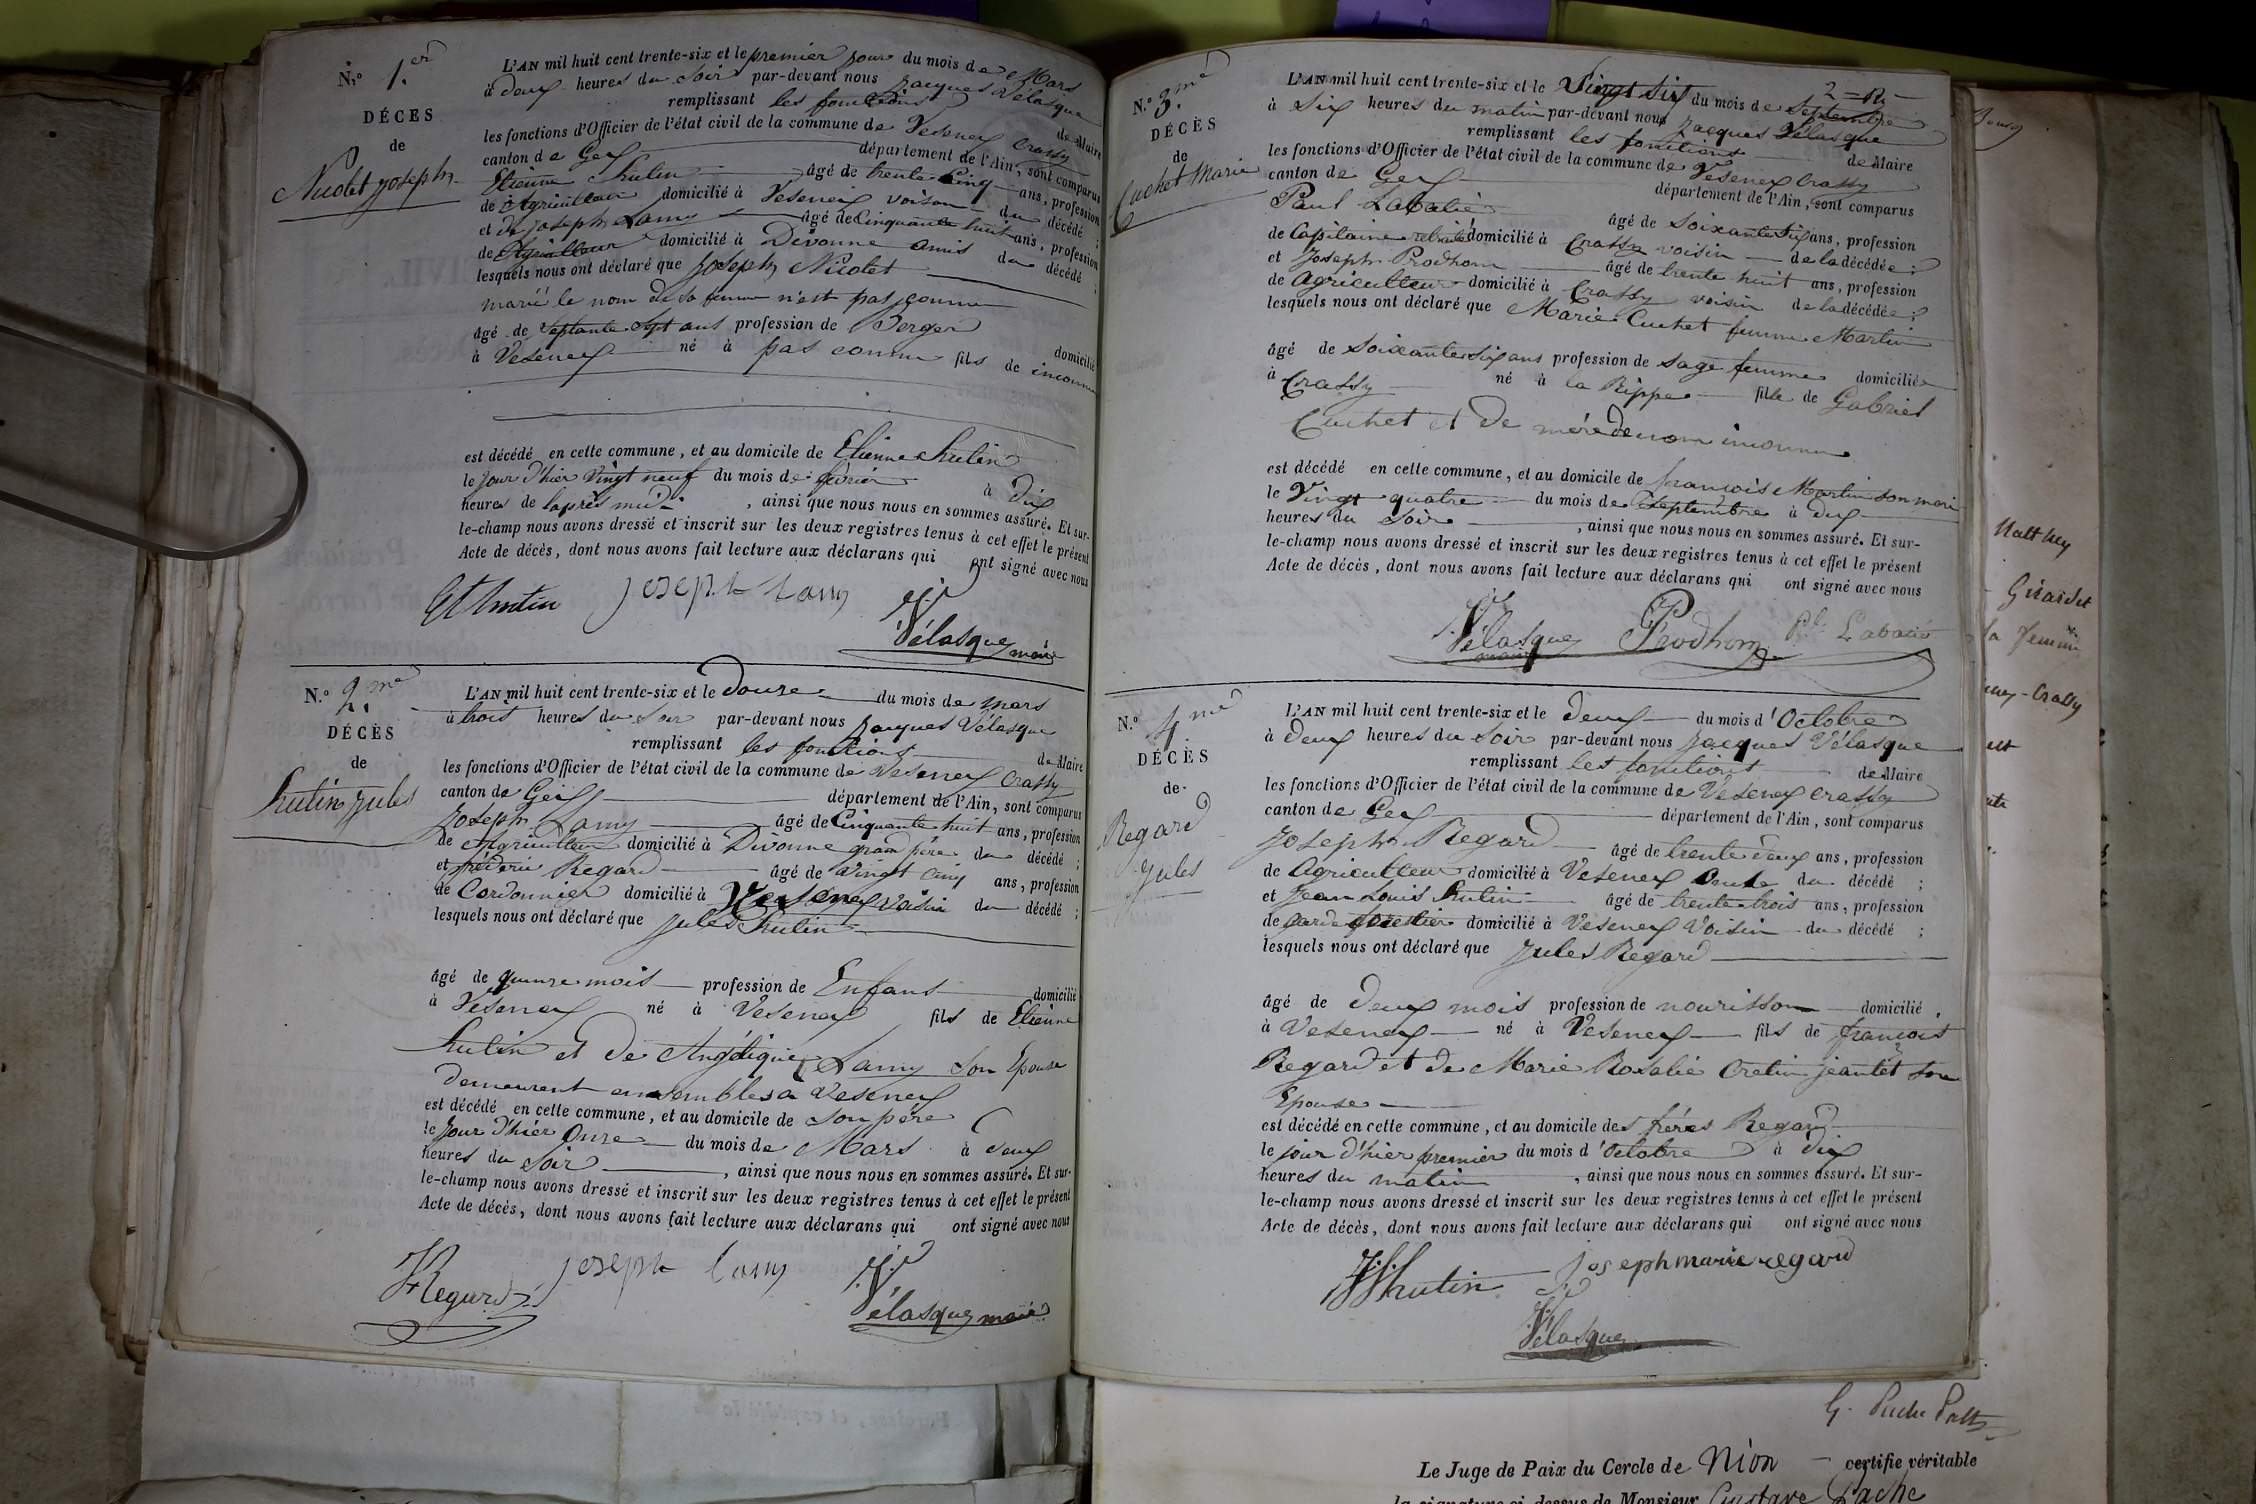 N.º 1.er
DÉCES
de
Nicolet joseph
L'AN mil huit cent trente-six et le premier jour du mois de Mars
à deux heures du soir par-devant nous jacques Vélasque
remplissant les fonctions de Maire
les fonctions d'Officier de l'état civil de la commune de Vesenex Crassy
canton de Gex département de l'Ain, sont comparus
Etienne hutin âgé de trente cinq ans, profession
de Agriculteur domicilié à Vesenex voisin du décédé ;
et de joseph Lamy âgé de Cinquante huit ans, profession
de Agriculteur domicilié à Divonne amis du décédé ;
lesquels nous ont déclaré que joseph Nicolet
marié le nom de sa femme n'est pas connu
âgé de Septante Sept ans profession de Berger domicilié
à Vesenex né à pas connu fils de inconnu
est décédé en cette commune, et au domicile de Etienne hutin
le jour d'hier Vingt neuf du mois de février à dix
heures de laprès midi , ainsi que nous nous en sommes assuré. Et sur-
le-champ nous avons dressé et inscrit sur les deux registres tenus à cet effet le présent
Acte de décès, dont nous avons fait lecture aux déclarans qui ont signé avec nous
Et hutin joseph lamy Vélasque maire
N.º 2.me
DÉCÈS
de
hutin jules
L'AN mil huit cent trente-six et le douze du mois de mars
à trois heures du Soir par-devant nous jacques Vélasque
remplissant les fonctions de Maire
les fonctions d'Officier de l'état civil de la commune de Vesenex Crassy
canton de Gex département de l'Ain, sont comparus
joseph Lamy âgé de Cinquante huit ans, profession
de Agriculteur domicilié à Divonne grand père du décédé ;
et fréderic Regard âgé de vingt cinq ans, profession
de Cordonnier domicilié à Vesenex voisin du décédé ;
lesquels nous ont déclaré que jules hutin
âgé de quinze mois profession de Enfant domicilié
à Vesenex né à Vesenex fils de Etienne
hutin et de Angélique Lamy Son Epouse
demeurent ensembles a Vesenex
est décédé en cette commune, et au domicile de son père
le jour d'hier Onze du mois de Mars à deux
heures du soir , ainsi que nous nous en sommes assuré. Et sur-
le-champ nous avons dressé et inscrit sur les deux registres tenus à cet effet le présent
Acte de décès, dont nous avons fait lecture aux déclarans qui ont signé avec nous
F Regard joseph lamy Vélasque maire
N.º 3.me
DÉCÈS
de
Cuchet Marie
L'AN mil huit cent trente-six et le Vingt six du mois de Septembre
à six heures du matin par-devant nous jacques Vélasque
remplissant les fonctions de Maire
les fonctions d'Officier de l'état civil de la commune de Vesenex Crassy
canton de Gex département de l'Ain, sont comparus
Paul Labatié âgé de soixante six ans, profession
de Capitaine retraité domicilié à Crassy voisin de la décédée ;
et Joseph Prodhom âgé de trente huit ans, profession
de agriculteur domicilié à Crassy voisin de la décédée ;
lesquels nous ont déclaré que Marie Cuchet femme Martin
âgé de soixante six ans profession de sage femme domiciliée
à Crassy né à la Rippe fille de Gabriel
Cuchet et de mère de nom inconnu
est décédé en cette commune, et au domicile de francois Martin son mari
le Vingt quatre du mois de Septembre à dix
heures du soir , ainsi que nous nous en sommes assuré. Et sur-
le-champ nous avons dressé et inscrit sur les deux registres tenus à cet effet le présent
Acte de décès, dont nous avons fait lecture aux déclarans qui ont signé avec nous
Vélasque maire Prodhom Pl Labatié
N.º 4.me
DÉCÈS
de
Regard
jules
L'AN mil huit cent trente-six et le deux du mois d'Octobre
à deux heures du soir par-devant nous jacques Vélasque
remplissant les fonctions de Maire
les fonctions d'Officier de l'état civil de la commune de Vesenex Crassy
canton de Gex département de l'Ain, sont comparus
joseph Regard âgé de trente deux ans, profession
de Agriculteur domicilié à Vesenex Oncle du décédé ;
et jean Louis hutin âgé de trente trois ans, profession
de garde forestier domicilié à Vesenex Voisin du décédé ;
lesquels nous ont déclaré que jules Regard
âgé de deux mois profession de nourisson domicilié
à Vesenex né à Vesenex fils de francois
Regard et de Marie Rosalie Cretin jeantet son
Epouse
est décédé en cette commune, et au domicile des frères Regard
le jour d'hier premier du mois d'Octobre à dix
heures du matin , ainsi que nous nous en sommes assuré. Et sur-
le-champ nous avons dressé et inscrit sur les deux registres tenus à cet effet le présent
Acte de décès, dont nous avons fait lecture aux déclarans qui ont signé avec nous
hutin joseph marie regard
Vélasque
Matthey
Girardet
la femme
Crassy
Le Juge de Paix du Cercle de Nion certifie véritable
la signature ci-dessus de Monsieur Gustave Pache